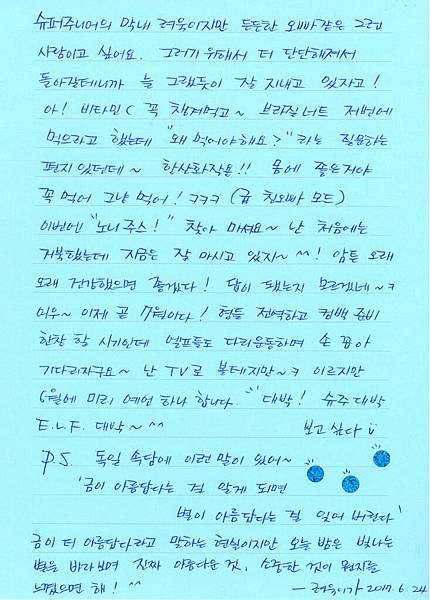 슈퍼주니어의 막내 려욱이지만 든든한 오빠같은 그런
사람이고 싶어요. 그러기 위해서 더 단단해져서
돌아갈테니까 늘 그랬듯이 잘 지내고 있자고!
아! 비타민C 꼭 챙겨먹고~ 브라질너트 저번에
먹으라고 했는데 "왜 먹어야해요?" 라는 질문하는
편지 있던데~ 항산화작용!! 몸에 좋은거야
꼭 먹어 그냥 먹어! ㅋㅋㅋ (급 친오빠 모드)
이번에 "노니주스!" 찾아 마셔요~ 난 처음에는
거북했는데 지금은 잘 마시고 있지~^^! 암튼 오래
오래 건강했으면 좋겠다! 답이 됐는지 모르겠네~ㅋ
어우~ 이제 곧 7월이다! 형들 전역하고 컴백 준비
한창 할 시기인데 엘프들도 다리운동하며 손 꼽아
기다리자구요~ 난 TV로 볼테지만~ㅋ 이르지만
6월에 미리 예언 하나 합니다. "대박! 슈주대박
E.L.F. 대박~^^ 보고싶다 ü
P.S. 독일 속담에 이런 말이 있어~
'금이 아름답다는 걸 알게 되면
별이 아름답다는 걸 잊어 버린다'
금이 더 아름답다라고 말하는 현실이지만 오늘 밤은 빛나는
별을 바라보며 진짜 아름다운 것, 소중한 것이 뭔지를
느꼈으면 해! ^^
- 려욱이가 2017. 6. 24